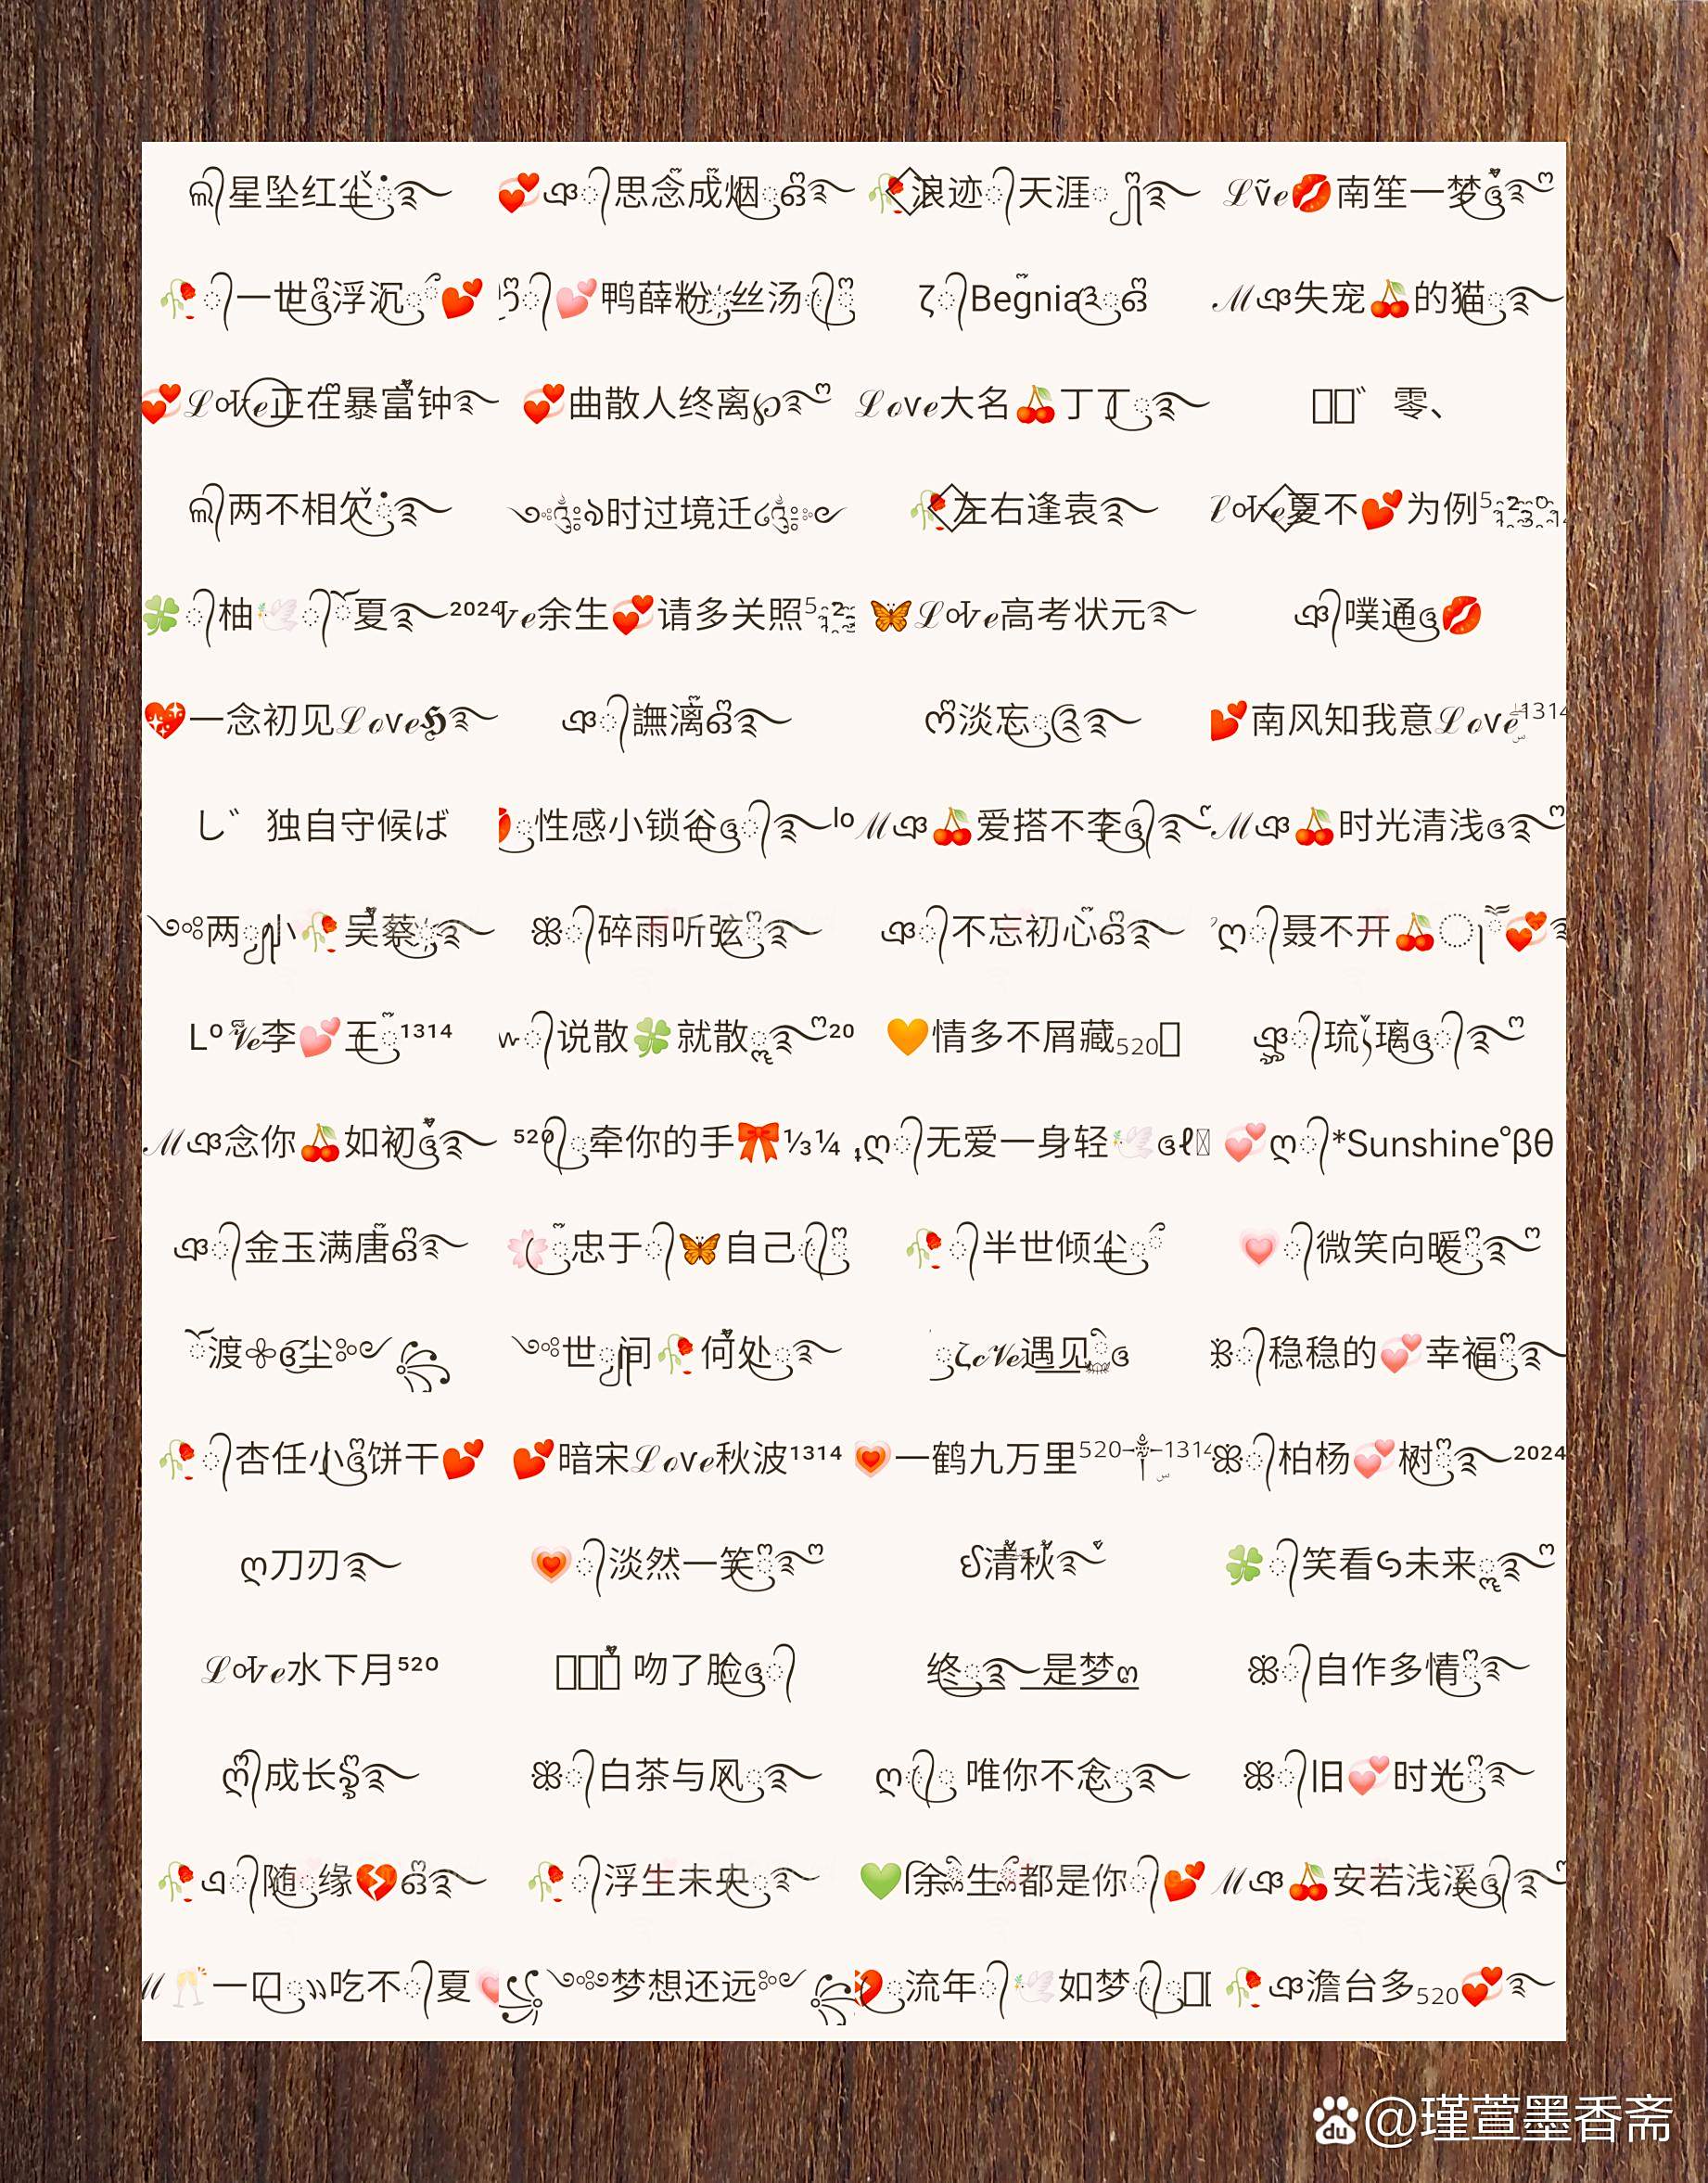 ണ᭄星坠红尘ৡ࿐ 💞ঞ᭄思念成烟ঔ࿐ 🥀浪迹᭄天涯࿐ ℒṽℯ💋南笙一梦ঞ࿐ღ
🥀᭄一世ঔ浮沉💕 ᭄💕鸭薛粉丝汤᭄ ζ᭄Begniaঔ ℳঞ失宠🍒的猫࿐
💞ℒᵒѵℯ正在暴富钟࿐ 💞曲散人终离℘࿐ღ ℒℴѵℯ大名🍒丁丁࿐ ゛零、
ണ᭄两不相欠࿐ ༺时过境迁༻ 🥀左右逢袁࿐ ℒᵒѵℯ夏不💕为例⁵²⁰
🍀᭄柚🕊᭄夏࿐²⁰²⁴ ѵℯ余生💞请多关照⁵² 🦋ℒᵒѵℯ高考状元࿐ ঞ᭄噗通ঞ💋
💖一念初见ℒℴѵℯ࿐ ঞ᭄譕漓ঔ࿐ ონ淡忘࿐ 💕南风知我意ℒℴѵℯ¹³¹⁴
し゛独自守候ば 性感小锁谷᭄࿐lo ℳঞ🍒爱搭不李᭄࿐ ℳঞ🍒时光清浅࿐ღ
༺两小🥀吴蔡࿐ ꕥ᭄碎雨听弦࿐ ঞ᭄不忘初心ঔ࿐ ღ᭄聂不开🍒💞
Lºѵℯ李💕王¹³¹⁴ ᭄说散🍀就散࿐ღ²⁰ 🧡情多不屑藏₅₂₀ ঞ᭄琉璃᭄࿐ღ
ℳঞ念你🍒如初࿐ ⁵²⁰᭄牵你的手🎀⅓¼ ღ᭄无爱一身轻🕊ℓ 💞ღ᭄*Sunshine°βθ
ঞ᭄金玉满唐ঔ࿐ 🌸忠于᭄🦋自己᭄ 🥀᭄半世倾尘 💗᭄微笑向暖࿐ღ
渡尘༻ ༺世间🥀何处࿐ ζℴѵℯ遇见 ꕥ᭄稳稳的💞幸福࿐
🥀᭄杏任小ঔ饼干💕 💕暗宋ℒℴѵℯ秋波¹³¹⁴ 💗一鹤九万里⁵²⁰⁻¹³¹⁴ ꕥ᭄柏杨💞树࿐²⁰²⁴
ღ刀刃࿐ 💗᭄淡然一笑࿐ღ 清秋࿐ 🍀᭄笑看未来࿐ღ
ℒᵒѵℯ水下月⁵²⁰ 吻了脸᭄ 终࿐是梦ღ ꕥ᭄自作多情࿐
ღ᭄成长࿐ ꕥ᭄白茶与风࿐ ღ᭄唯你不念࿐ ꕥ᭄旧💞时光࿐
🥀এ᭄随缘💔ঔ࿐ 🥀᭄浮生未央࿐ 💚余生都是你᭄💕 ℳঞ🍒安若浅溪᭄࿐
ℳ🥂一口吃不᭄夏💗 ༺梦想还远༻ 流年᭄🕊如梦᭄ 🥀ঞ澹台多₅₂₀💞࿐
@瑾萱墨香斋